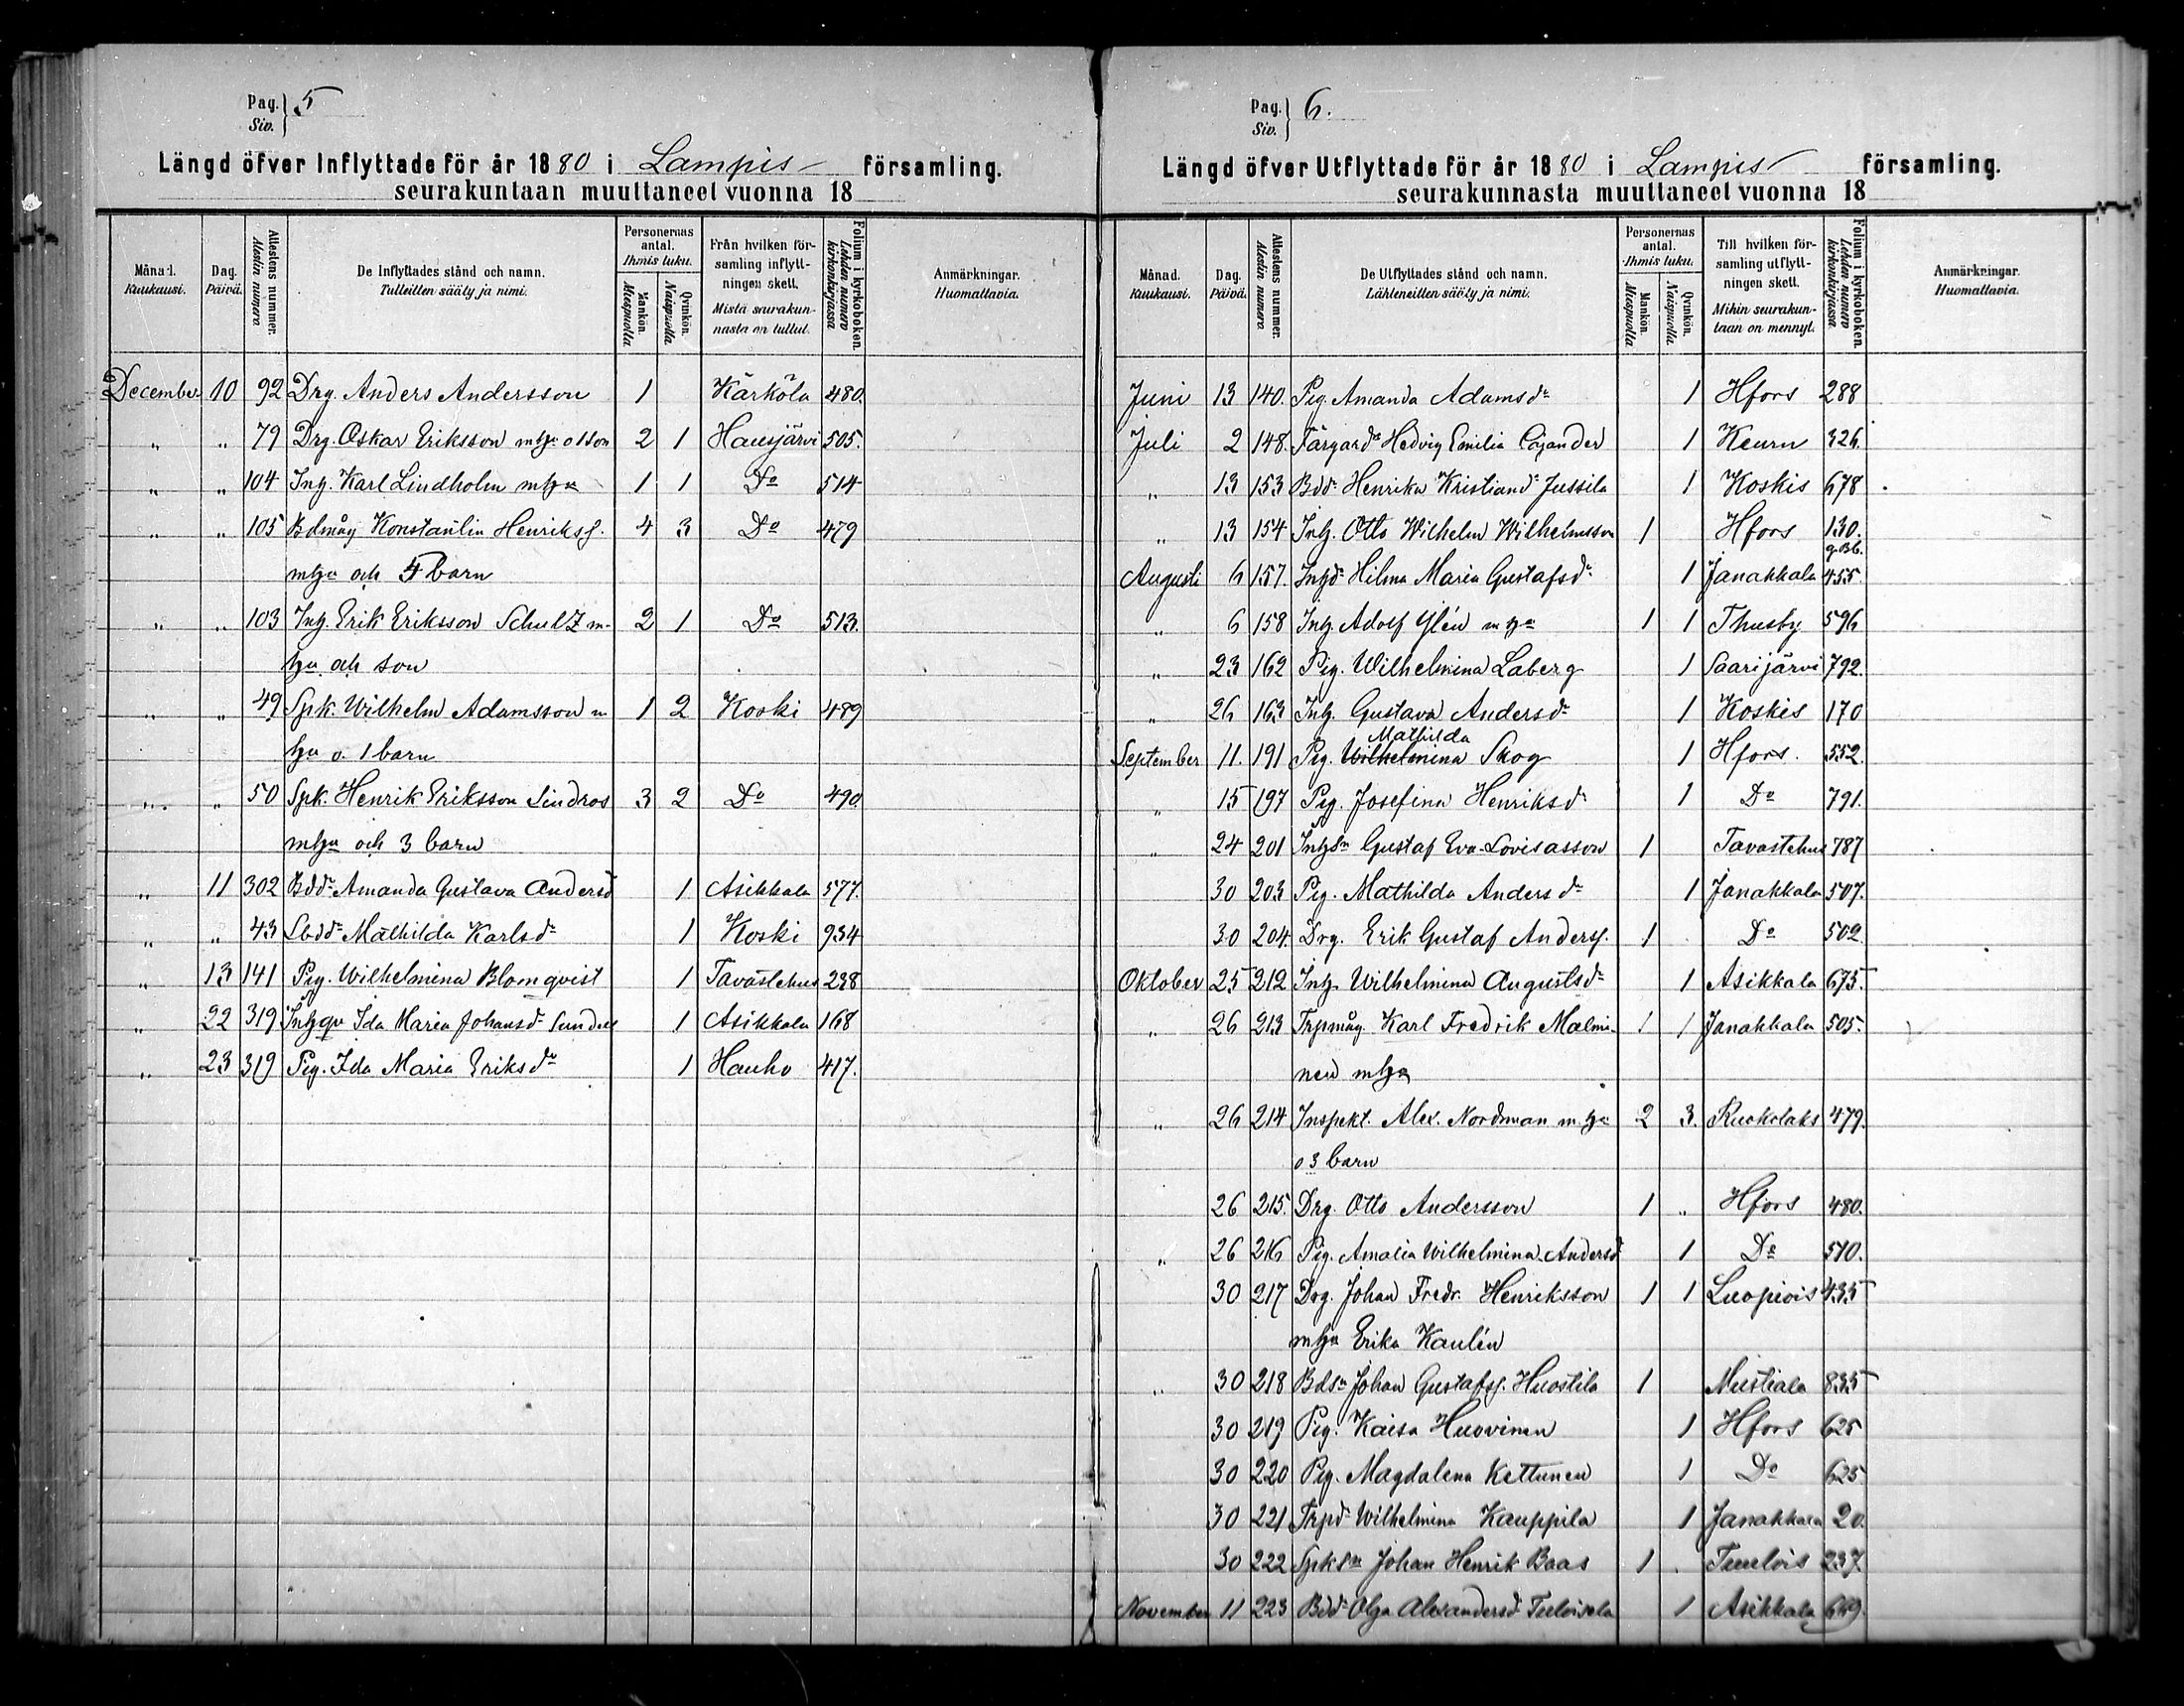 Pag. Siv. } 5
Längd öfver Inflyttade för år 1880 i Lampis församling.
seurakuntaan muuttaneet vuonna 18
Månad. Kuukausi.
Dag. Päivä.
Attestens nummer. Atestin numero
De Inflyttades stånd och namn. Tulleitten sääty ja nimi.
Personernas antal. Ihmis luku.
Mankön. Miespuolia
Qvinkön. Naispuolia
Från hvilken församling inflyttningen skett. Mistä seurakunnasta on tullut.
Folium i kyrkoboken. Lehden numero kirkonkirjassa
Anmärkningar. Huomattavia.
December 10 92 Drg. Anders Andersson 1 Kärkölä 480.
" " 79 Drg. Oskar Eriksson m hu o 1 son 2 1 Hausjärvi 505.
" " 104 Inh. Karl Lindholm m hu 1 1 Do 514
" " 105 Bdmåg Konstantin Henrikss. 4 3 Do 479
m hu och 4 barn
" " 103 Inh. Erik Eriksson Schultz m. 2 1 Do 513.
hu och son
" " 49 Spk. Wilhelm Adamsson m 1 2 Koski 489
hu o. 1 barn
" " 50 Spk. Henrik Eriksson Lindros 3 2 Do 490
m hu och 3 barn
" 11 302 Bddr Amanda Gustava Andersd 1 Asikkala 577.
" " 43 Sbddr Mathilda Karlsdr 1 Koski 934
" 13 141 Pig. Wilhelmina Blomqvist 1 Tavastehus 238
" 22 319 Inhqv Ida Maria Johansdr 1 Asikkala 168
" 23 319 Pig. Ida Maria Eriksdr 1 Hauho 417.
Pag. Siv. } 6.
Längd öfver Utflyttade för år 1880 i Lampis församling.
seurakunnasta muuttaneet vuonna 18
Månad. Kuukausi.
Dag. Päivä.
Attestens nummer. Atestin numero
De Utflyttades stånd och namn. Lähteneitten sääty ja nimi.
Personernas antal. Ihmis luku.
Mankön. Miespuolia
Qvinkön. Naispuolia
Till hvilken församling utflyttningen skett. Mihin seurakuntaan on mennyt.
Folium i kyrkoboken. Lehden numero kirkonkirjassa
Anmärkningar. Huomattavia.
Juni 13 140. Pig. Amanda Adamsdr 1 Hfors 288
Juli 2 148. Färgardr Hedvig Emilia Cajander 1 Keuru 326.
" 13 153 Bddr Henrika Kristiandr Jussila 1 Koskis 678
" 13 154 Inh. Otto Wilhelm Wilhelmsson 1 Hfors 130. g.Bb.
Augusti 6 157. Inhdr Hilma Maria Gustafsdr 1 Janakkala 455.
" 6 158 Inh. Adolf Ylén m hu 1 1 Thusby 596
" 23 162 Pig. Wilhelmina Laberg 1 Saarijärvi 792.
" 26 163 Inh. Gustava Andersdr 1 Koskis 170
Mathilda
September 11. 191 Pig. Wilhelmina Skog 1 Hfors. 552.
" 15 197 Pig. Josefina Henriksdr 1 Do 791.
" 24 201 Inhsn Gustaf Eva-Lovisasson 1 Tavastehus 787
30 203 Pig. Mathilda Andersdr 1 Janakkala 507.
30 204. Drg. Erik Gustaf Anderss. 1 Do 502.
Oktober 25 212 Inh. Wilhelmina Augustsdr 1 Asikkala 675.
" 26 213 Trpmåg Karl Fredrik Malmi- 1 1 Janakkala 505.
nen m hu
" 26 214 Inspekt. Alex. Nordman m hu 2 3. Ruokolaks 479.
o 3 barn
26 215. Drg. Otto Andersson 1 " Hfors 480.
" 26 216 Pig. Amalia Wilhelmina Andersdr 1 Do 510.
30 217 Drg. Johan Fredr. Henriksson 1 1 Luopiois 435
m hu Erika Kaulén
" 30 218 Bdsn Johan Gustafss. Huostila 1 Mustiala 835
30 219 Pig. Kaisa Huovinen 1 Hfors 625
30 220 Pig. Magdalena Kettunen 1 Do 625
30 221 Trpdr Wilhelmina Kauppila 1 Janakkala 20.
30 222 Spksn Johan Henrik Baas 1 Tuulois 237.
November 11 223 Bddr Olga Alexandersd 1 Asikkala 669.